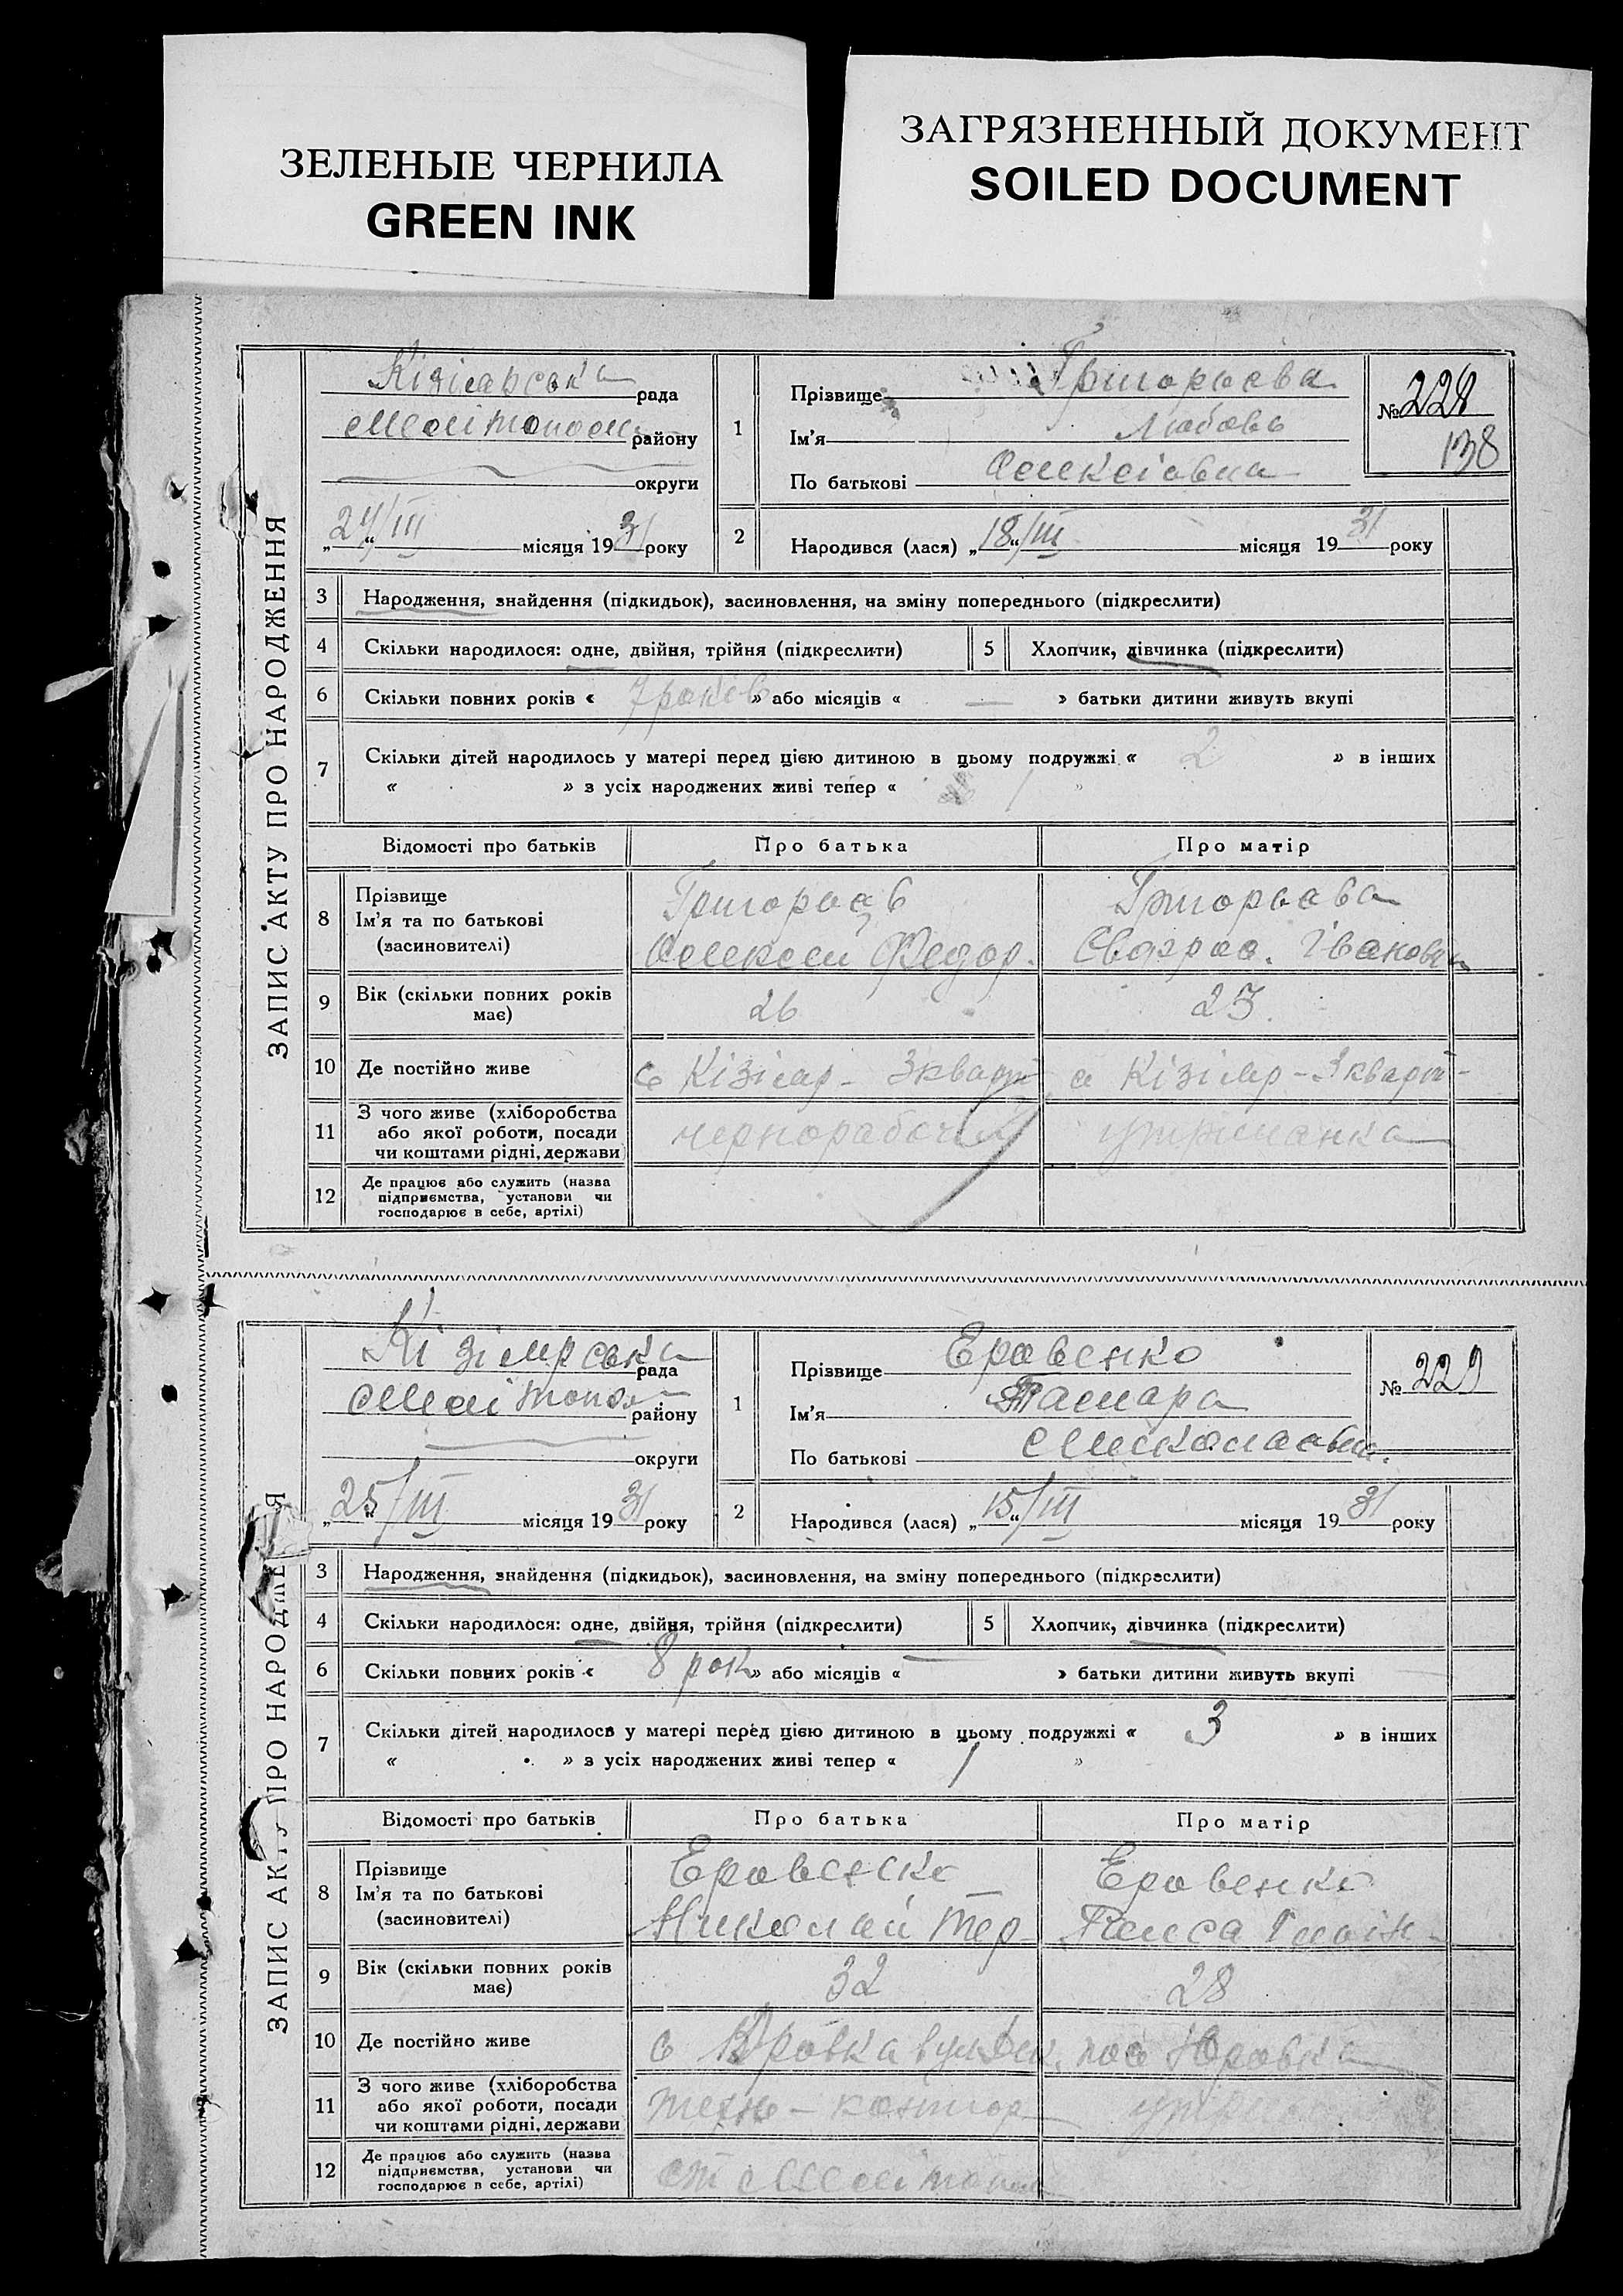 ЗЕЛЕНЫЕ ЧЕРНИЛА
GREEN INK
ЗАГРЯЗНЕННЫЙ ДОКУМЕНТ
SOILED DOCUMENT
ЗАПИС АКТУ ПРО НАРОДЖЕННЯ
Кізіярська рада
Мелітополь району
округи
„24“/III місяця 1931 року
1 Прізвище Григорьева
Ім'я Любовь
По батькові Олексіовна
№ 228
138
2 Народився (лася) „18“/III місяця 1931 року
3 Народження, знайдення (підкидьок), засиновлення, на зміну попереднього (підкреслити)
4 Скільки народилося: одне, двійня, трійня (підкреслити) 5 Хлопчик, дівчинка (підкреслити)
6 Скільки повних років « 7 років » або місяців « — » батьки дитини живуть вкупі
7 Скільки дітей народилось у матері перед цією дитиною в цьому подружжі « 2 » в інших
« » з усіх народжених живі тепер « 1 »
Відомості про батьків Про батька Про матір
8 Прізвище Ім'я та по батькові (засновителі)
Григорьев Григорьева
Олексей Федор. Євдокія. Іванов
9 Вік (скільки повних років має) 26 25
10 Де постійно живе с Кізіяр - 3 кварт с Кізіяр - 3 кварт -
11 З чого живе (хліборобства або якої роботи, посади чи коштами рідні, держави) чернорабочий утриманка
12 Де працює або служить (назва підприємства, установи чи господарює в себе, артілі)
ЗАПИС АКТУ ПРО НАРОДЖЕ Я
Кізіярська рада
Мелітополь району
округи
„25“/III місяця 1931 року
1 Прізвище Еровенко
Ім'я Тамара
По батькові Миколаовна.
№ 229
2 Народився (лася) „15“/III місяця 1931 року
3 Народження, знайдення (підкидьок), засиновлення, на зміну попереднього (підкреслити)
4 Скільки народилося: одне, двійня, трійня (підкреслити) 5 Хлопчик, дівчинка (підкреслити)
6 Скільки повних років « 8 рок » або місяців « — » батьки дитини живуть вкупі
7 Скільки дітей народилось у матері перед цією дитиною в цьому подружжі « 3 » в інших
« » з усіх народжених живі тепер « 1 »
Відомості про батьків Про батька Про матір
8 Прізвище Ім'я та по батькові (засиновителі)
Еровенско Еровенко
Николай Тер
9 Вік (скільки повних років має) 32 28
10 Де постійно живе с Юровка пос Юровка
11 З чого живе (хліборобства або якої роботи, посади чи коштами рідні, держави) техн - контор
12 Де працює або служить (назва підприємства, установи чи господарює в себе, артілі) ст Мелітополь